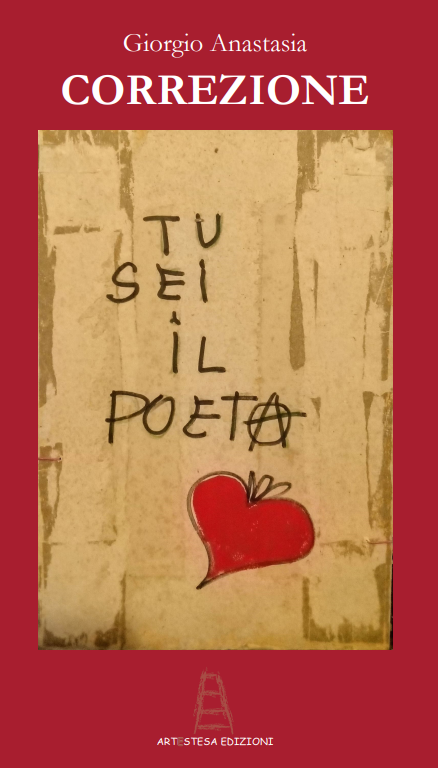 Giorgio Anastasia
CORREZIONE
TU
SEI
IL
POETA
ARTESTESA EDIZIONI